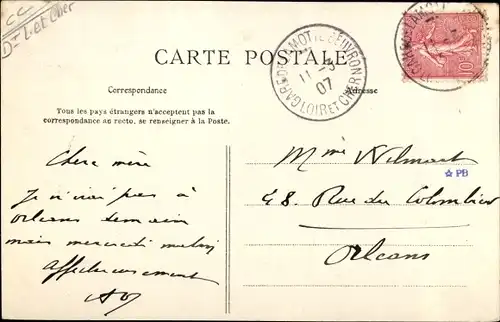 CC
Dt L et Cher
CARTE POSTALE
GARE DE LAMOTTE BEUVRON
11 - 3
07
LOIR ET CHER
10
Correspondance
Adresse
Tous les pays étrangers n'acceptent pas la
correspondance au recto, se renseigner à la Poste.
Chère mère
Je n'irai pas à
Orléans demain
mais mercredi matin
Affectueusement
Mme Wilmart
48. Rue du Colombier
Orléans
☆ PB